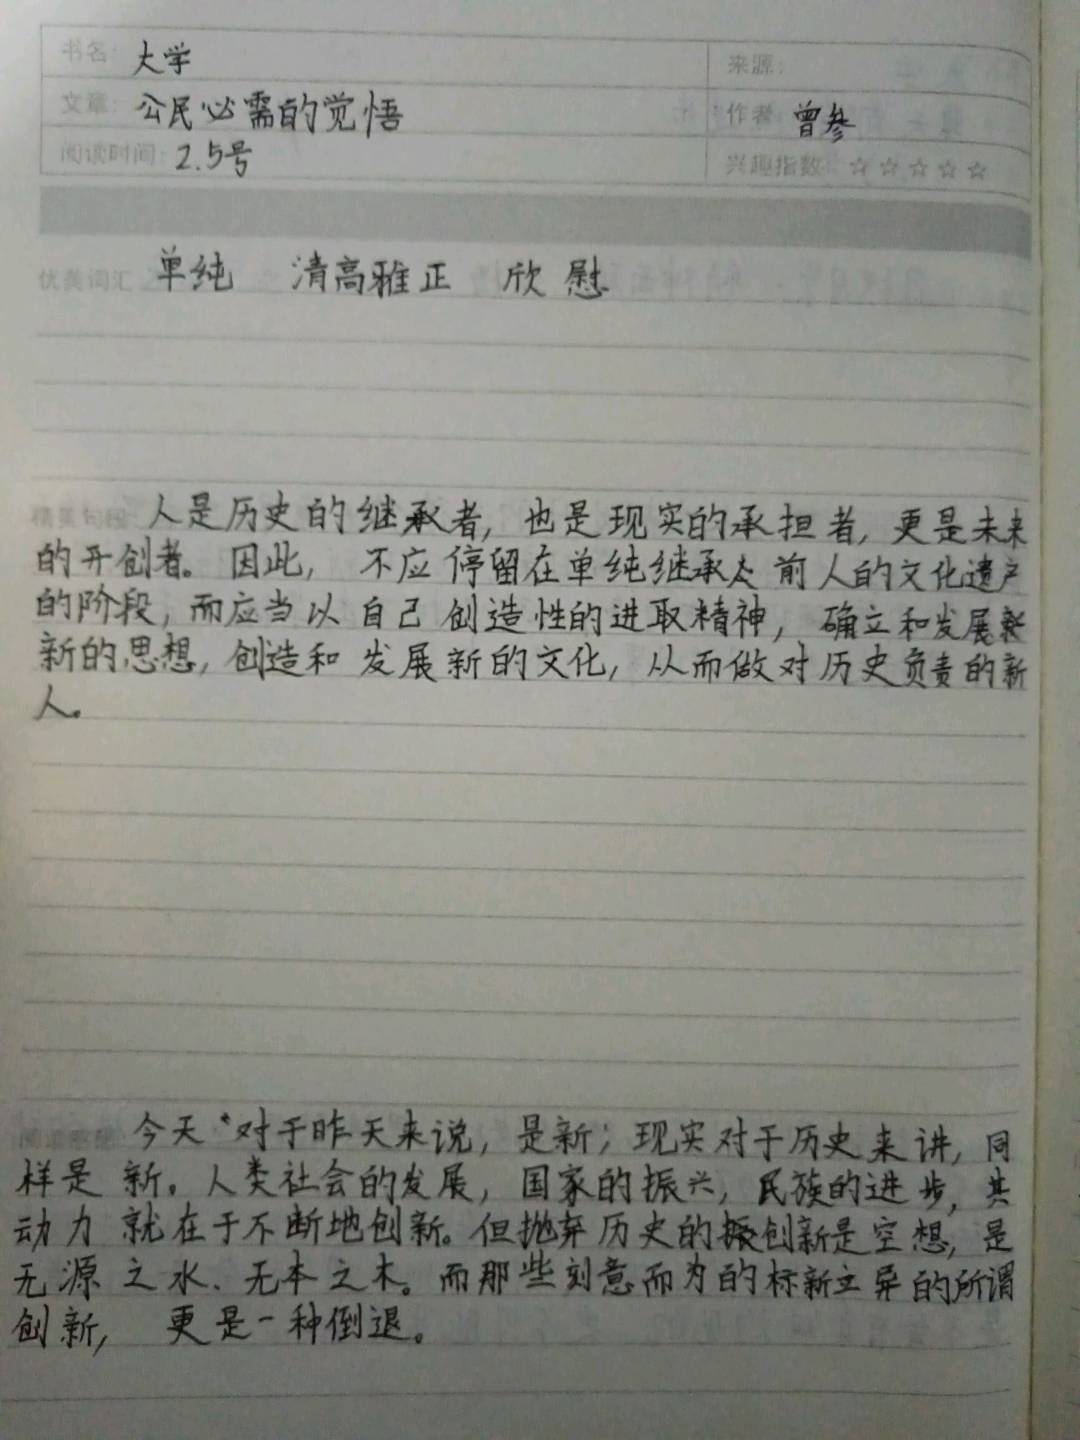 书名: 大学
来源:
文章: 公民必需的觉悟
作者: 曾参
阅读时间: 2.5号
兴趣指数: ☆☆☆☆☆
优美词汇 单纯 清高雅正 欣慰
精美句段 人是历史的继承者, 也是现实的承担者, 更是未来
的开创者。因此, 不应停留在单纯继承 前人的文化遗产
的阶段, 而应当以自己创造性的进取精神, 确立和发展
新的思想, 创造和发展新的文化, 从而做对历史负责的新
人。
阅读感悟 今天 对于昨天来说, 是新; 现实对于历史来讲, 同
样是新。人类社会的发展, 国家的振兴, 民族的进步, 其
动力就在于不断地创新。但抛弃历史的创新是空想, 是
无源之水、无本之木。而那些刻意而为的标新立异的所谓
创新, 更是一种倒退。